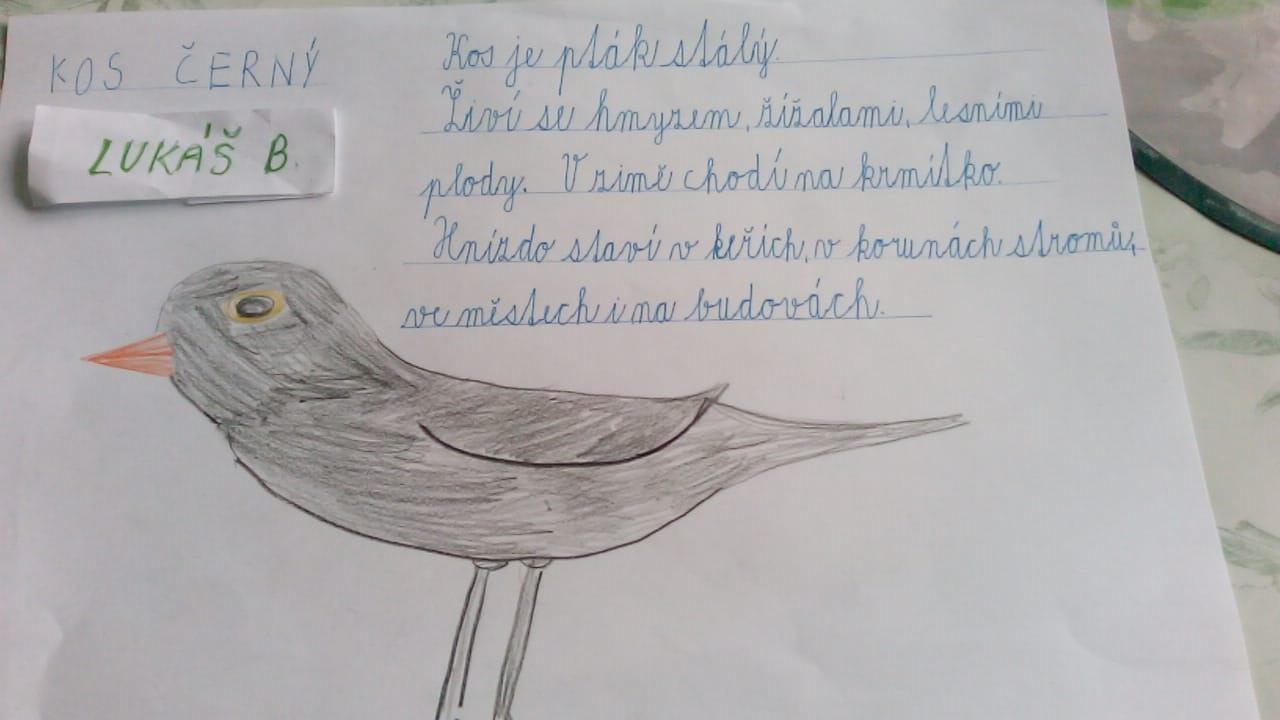 KOS ČERNÝ
LUKÁŠ B.
Kos je pták stálý.
Živí se hmyzem, žížalami, lesními
plody. V zimě chodí na krmítko.
Hnízdo staví v keřích, v korunách stromů,
ve městech i na budovách.